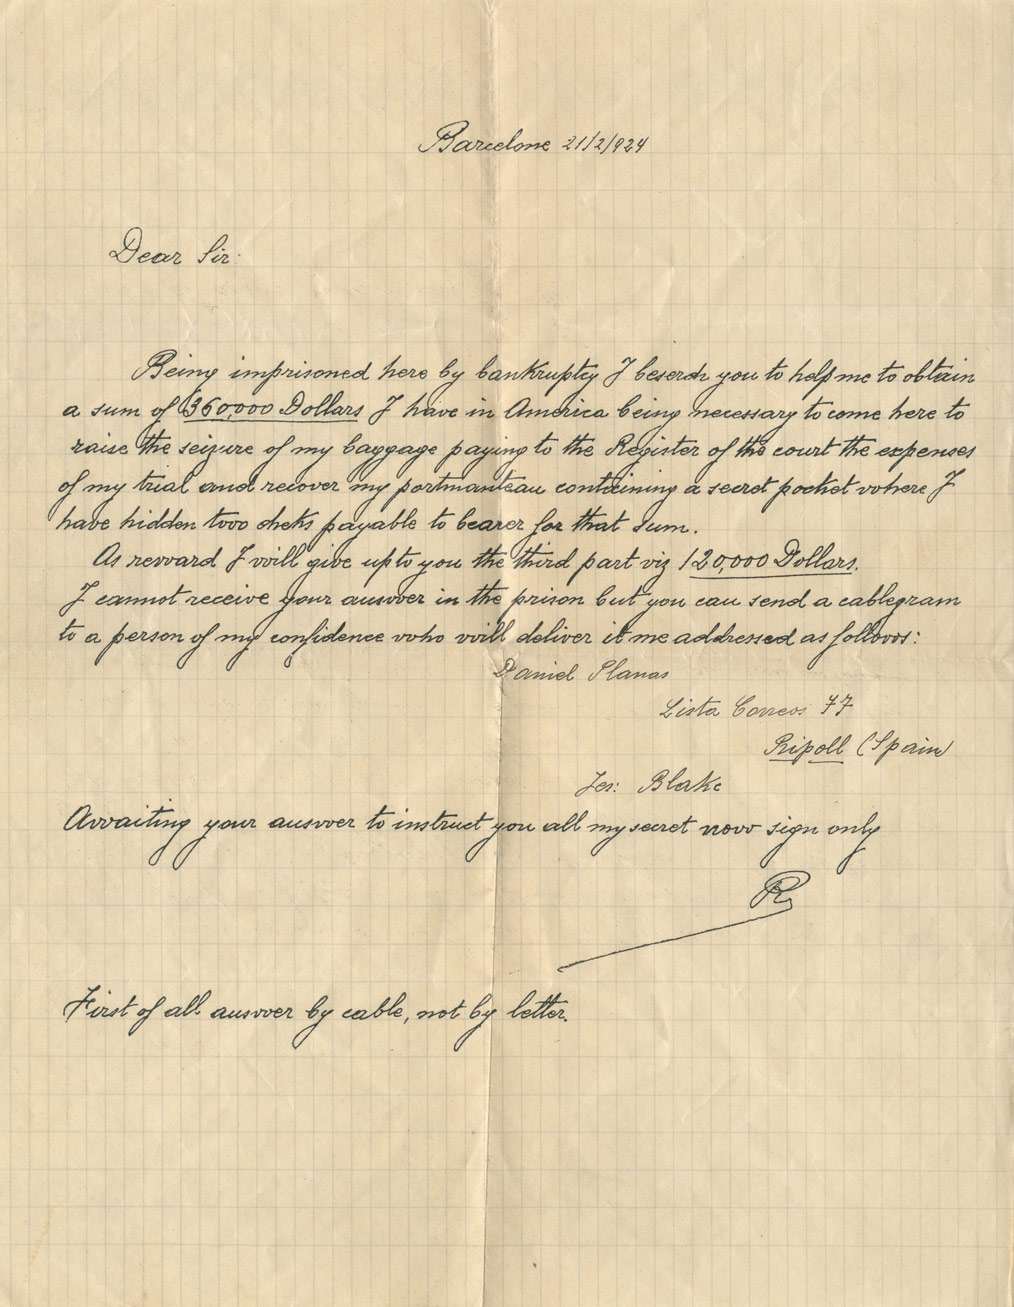 Barcelone 21/2/924
Dear Sir.
Being imprisoned here by bankruptcy I beserch you to help me to obtain
a sum of 360,000 Dollars I have in America being necessary to come here to
raise the seizure of my baggage paying to the Register of the court the expenses
of my trial and recover my portmanteau containing a secret pocket vvhere I
have hidden tvvo cheks payable to bearer for that sum.
As revvard I vvill give up to you the third part viz 120,000 Dollars.
I cannot receive your ausvver in the prison but you can send a cablegram
to a person of my confidence vvho vvill deliver it me addressed as follovvs:
Daniel Planas
Lista Correos 77
Ripoll (Spain)
Blake
Avvaiting your ausvver to instruct you all my secret novv sign only
R
First of all ausvver by cable, not by letter.